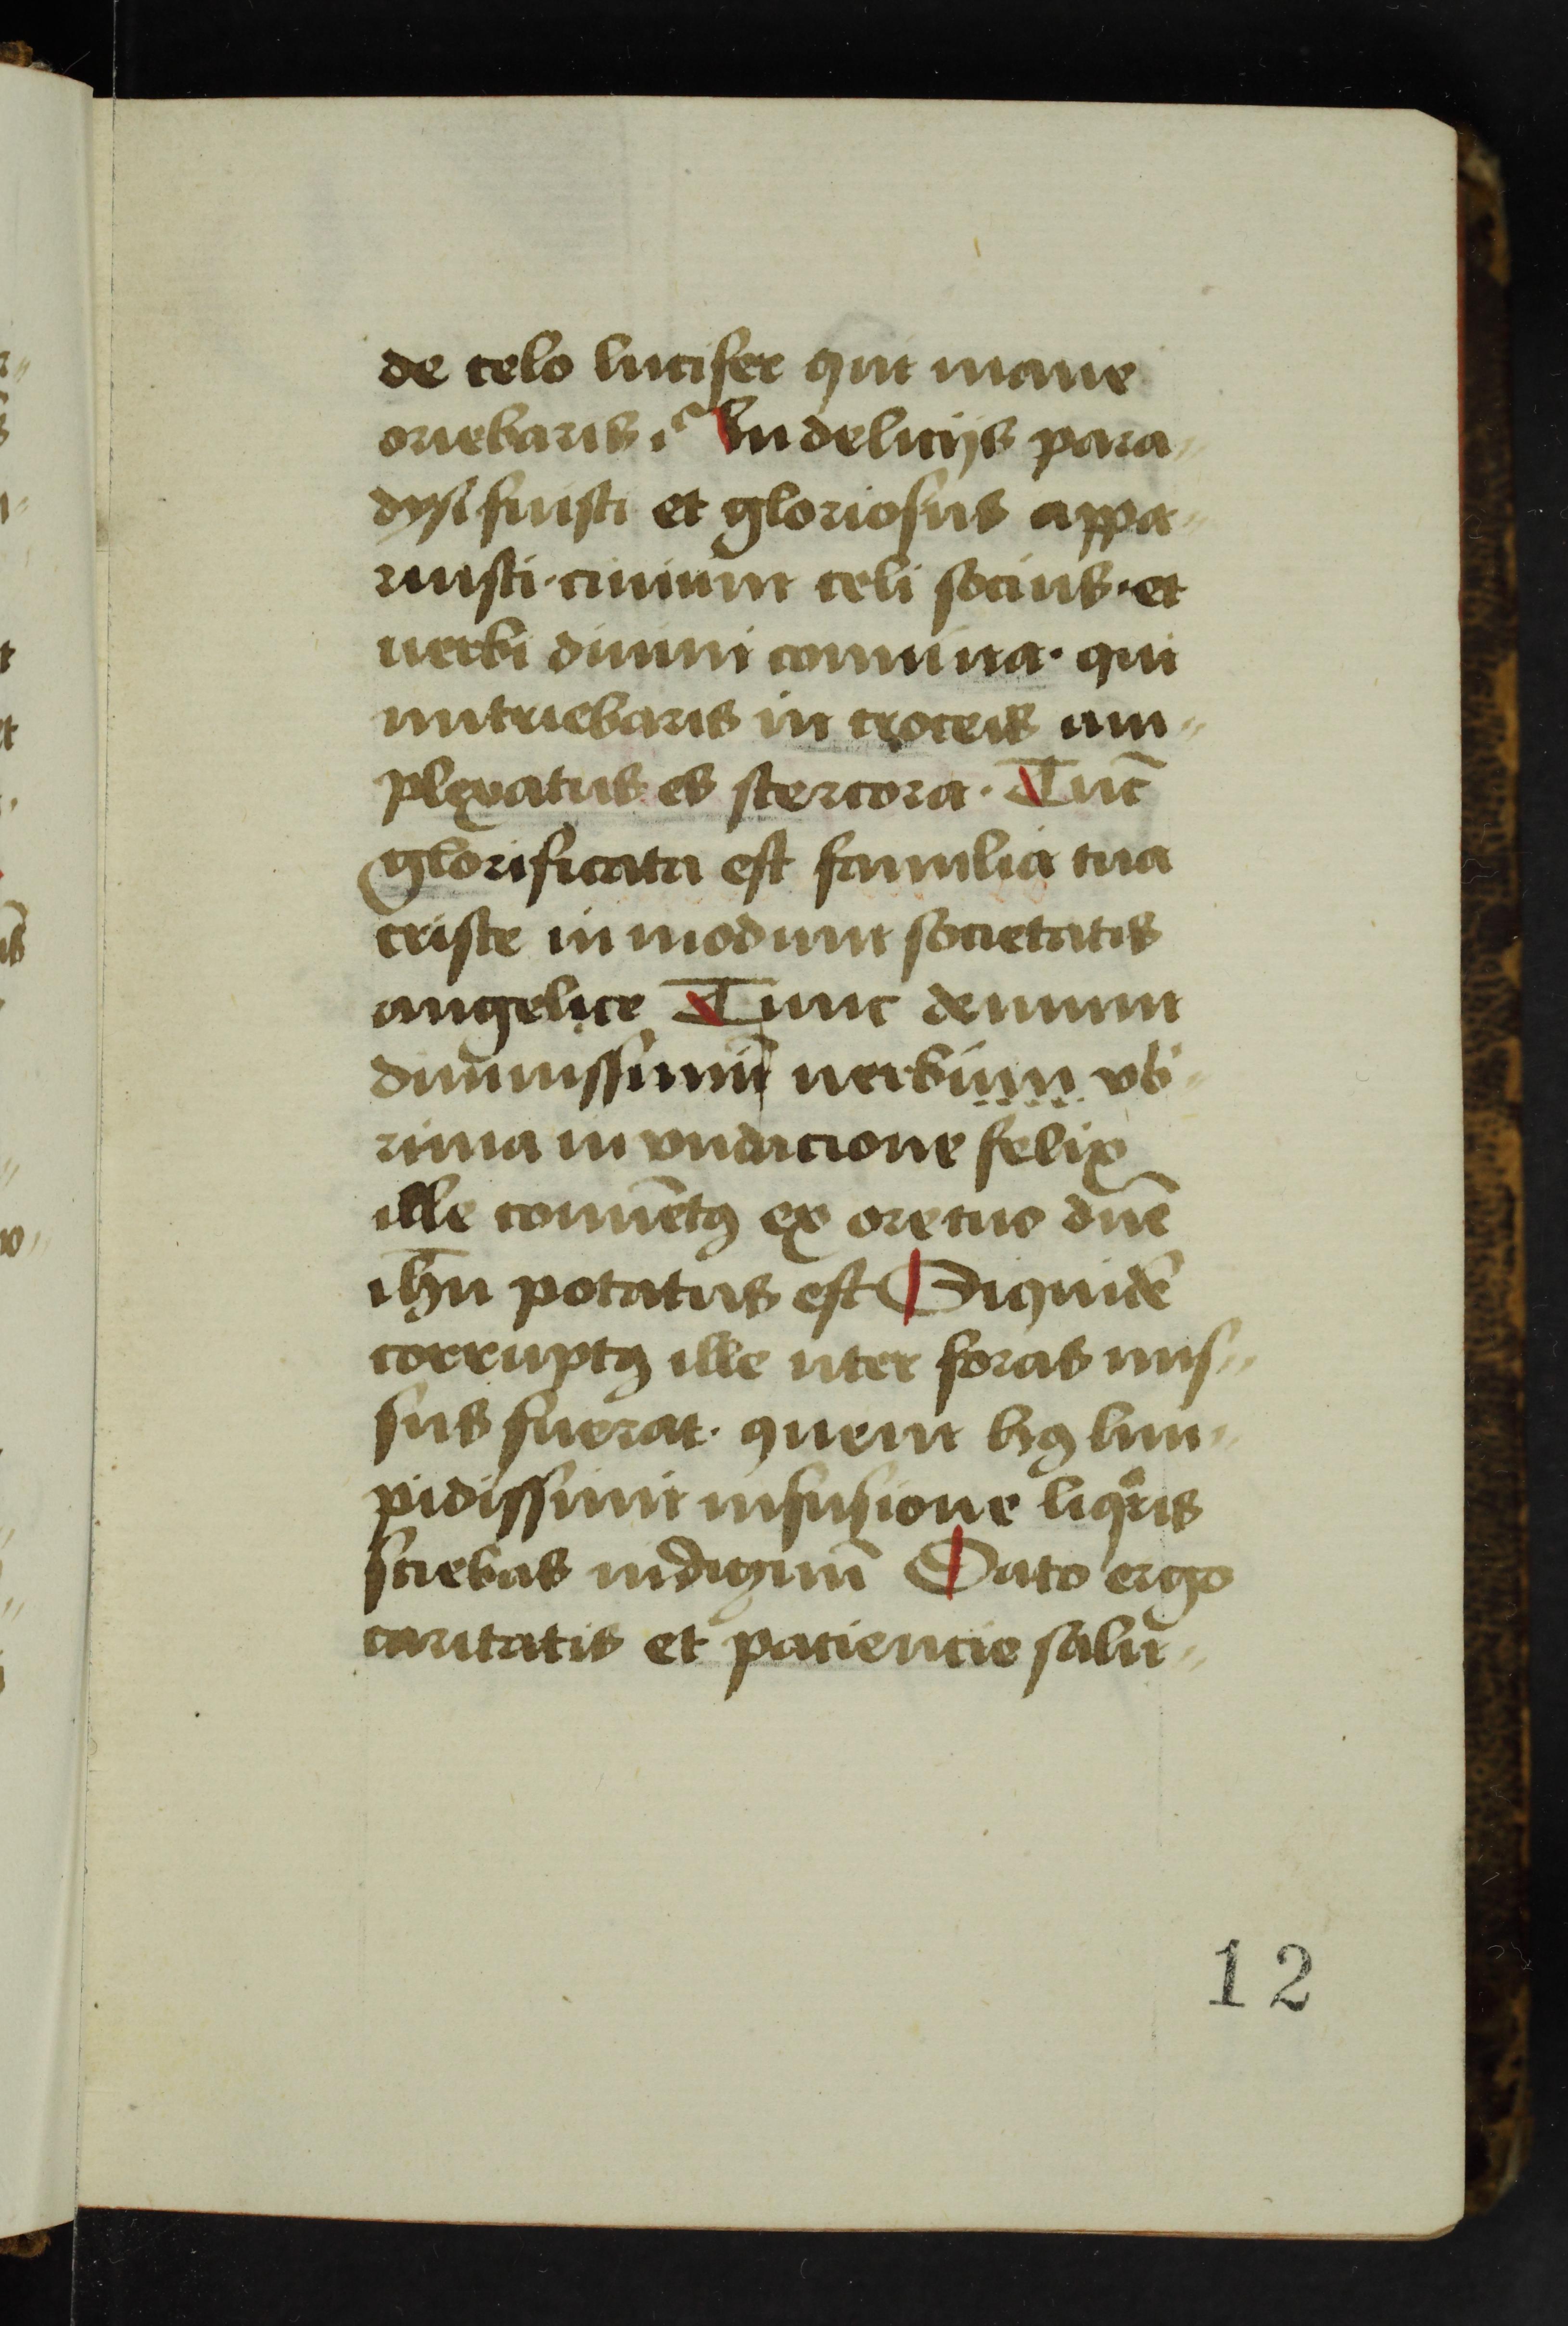 de celo lucifer qui mane
oriebaris ? In delicijs para"
dysi fuisti et gloriosus appa"
ruisti · ciuium celi socius · et
uerbi diuini conuiua · qui
nutriebaris in croceis am"
plexatus es stercora · Tūc
glorificata est familia tua
criste in modum societatis
angelice Tunc demum
diuinissimū uerbium vb"
rima in vndacione felix
ille conuētꝯ ex ore tuo dn̄e
ih̄u potatus est Siquidē
corruptꝯ ille uter foras mis"
sus fuerat · quem hꝯ lim"
pidissimi infusione liqͦris
sciebas indignū Dato ergo
caritatis et paciencie salu"
12